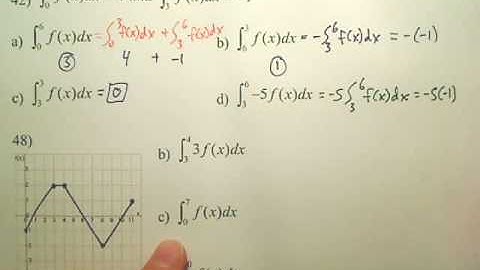 a) ∫₀⁶ f(x)dx = ∫₀³ f(x)dx + ∫₃⁶ f(x)dx
③ 4 + -1
b) ∫₆³ f(x)dx = -∫₃⁶ f(x)dx = -(-1)
①
c) ∫₃³ f(x)dx = 0
d) ∫₃⁶ -5f(x)dx = -5∫₃⁶ f(x)dx = -5(-1)
48)
b) ∫₃⁴ 3f(x)dx
c) ∫₀⁷ f(x)dx